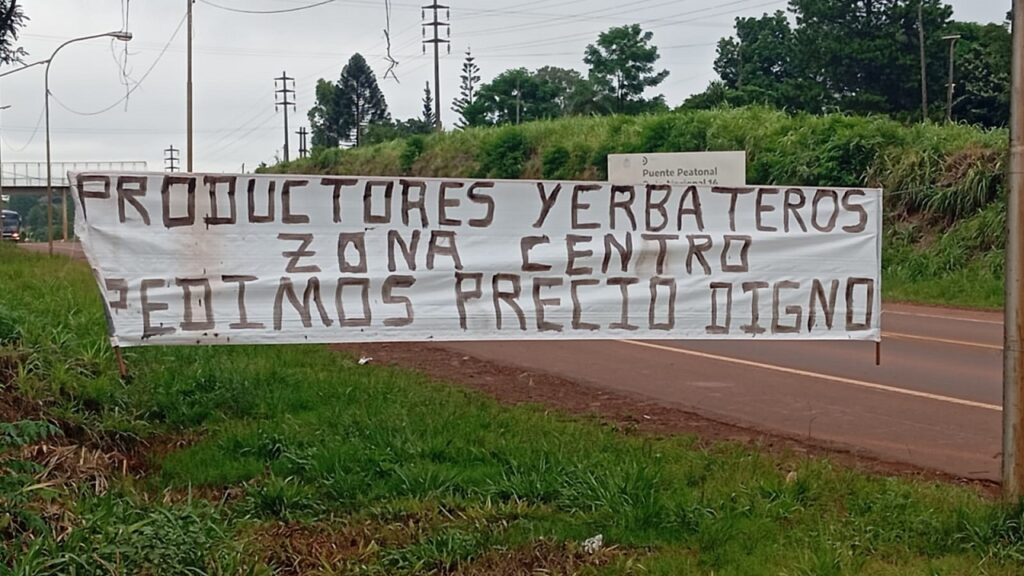 Puente Peatonal
PRODUCTORES YERBATEROS
ZONA CENTRO
PEDIMOS PRECIO DIGNO